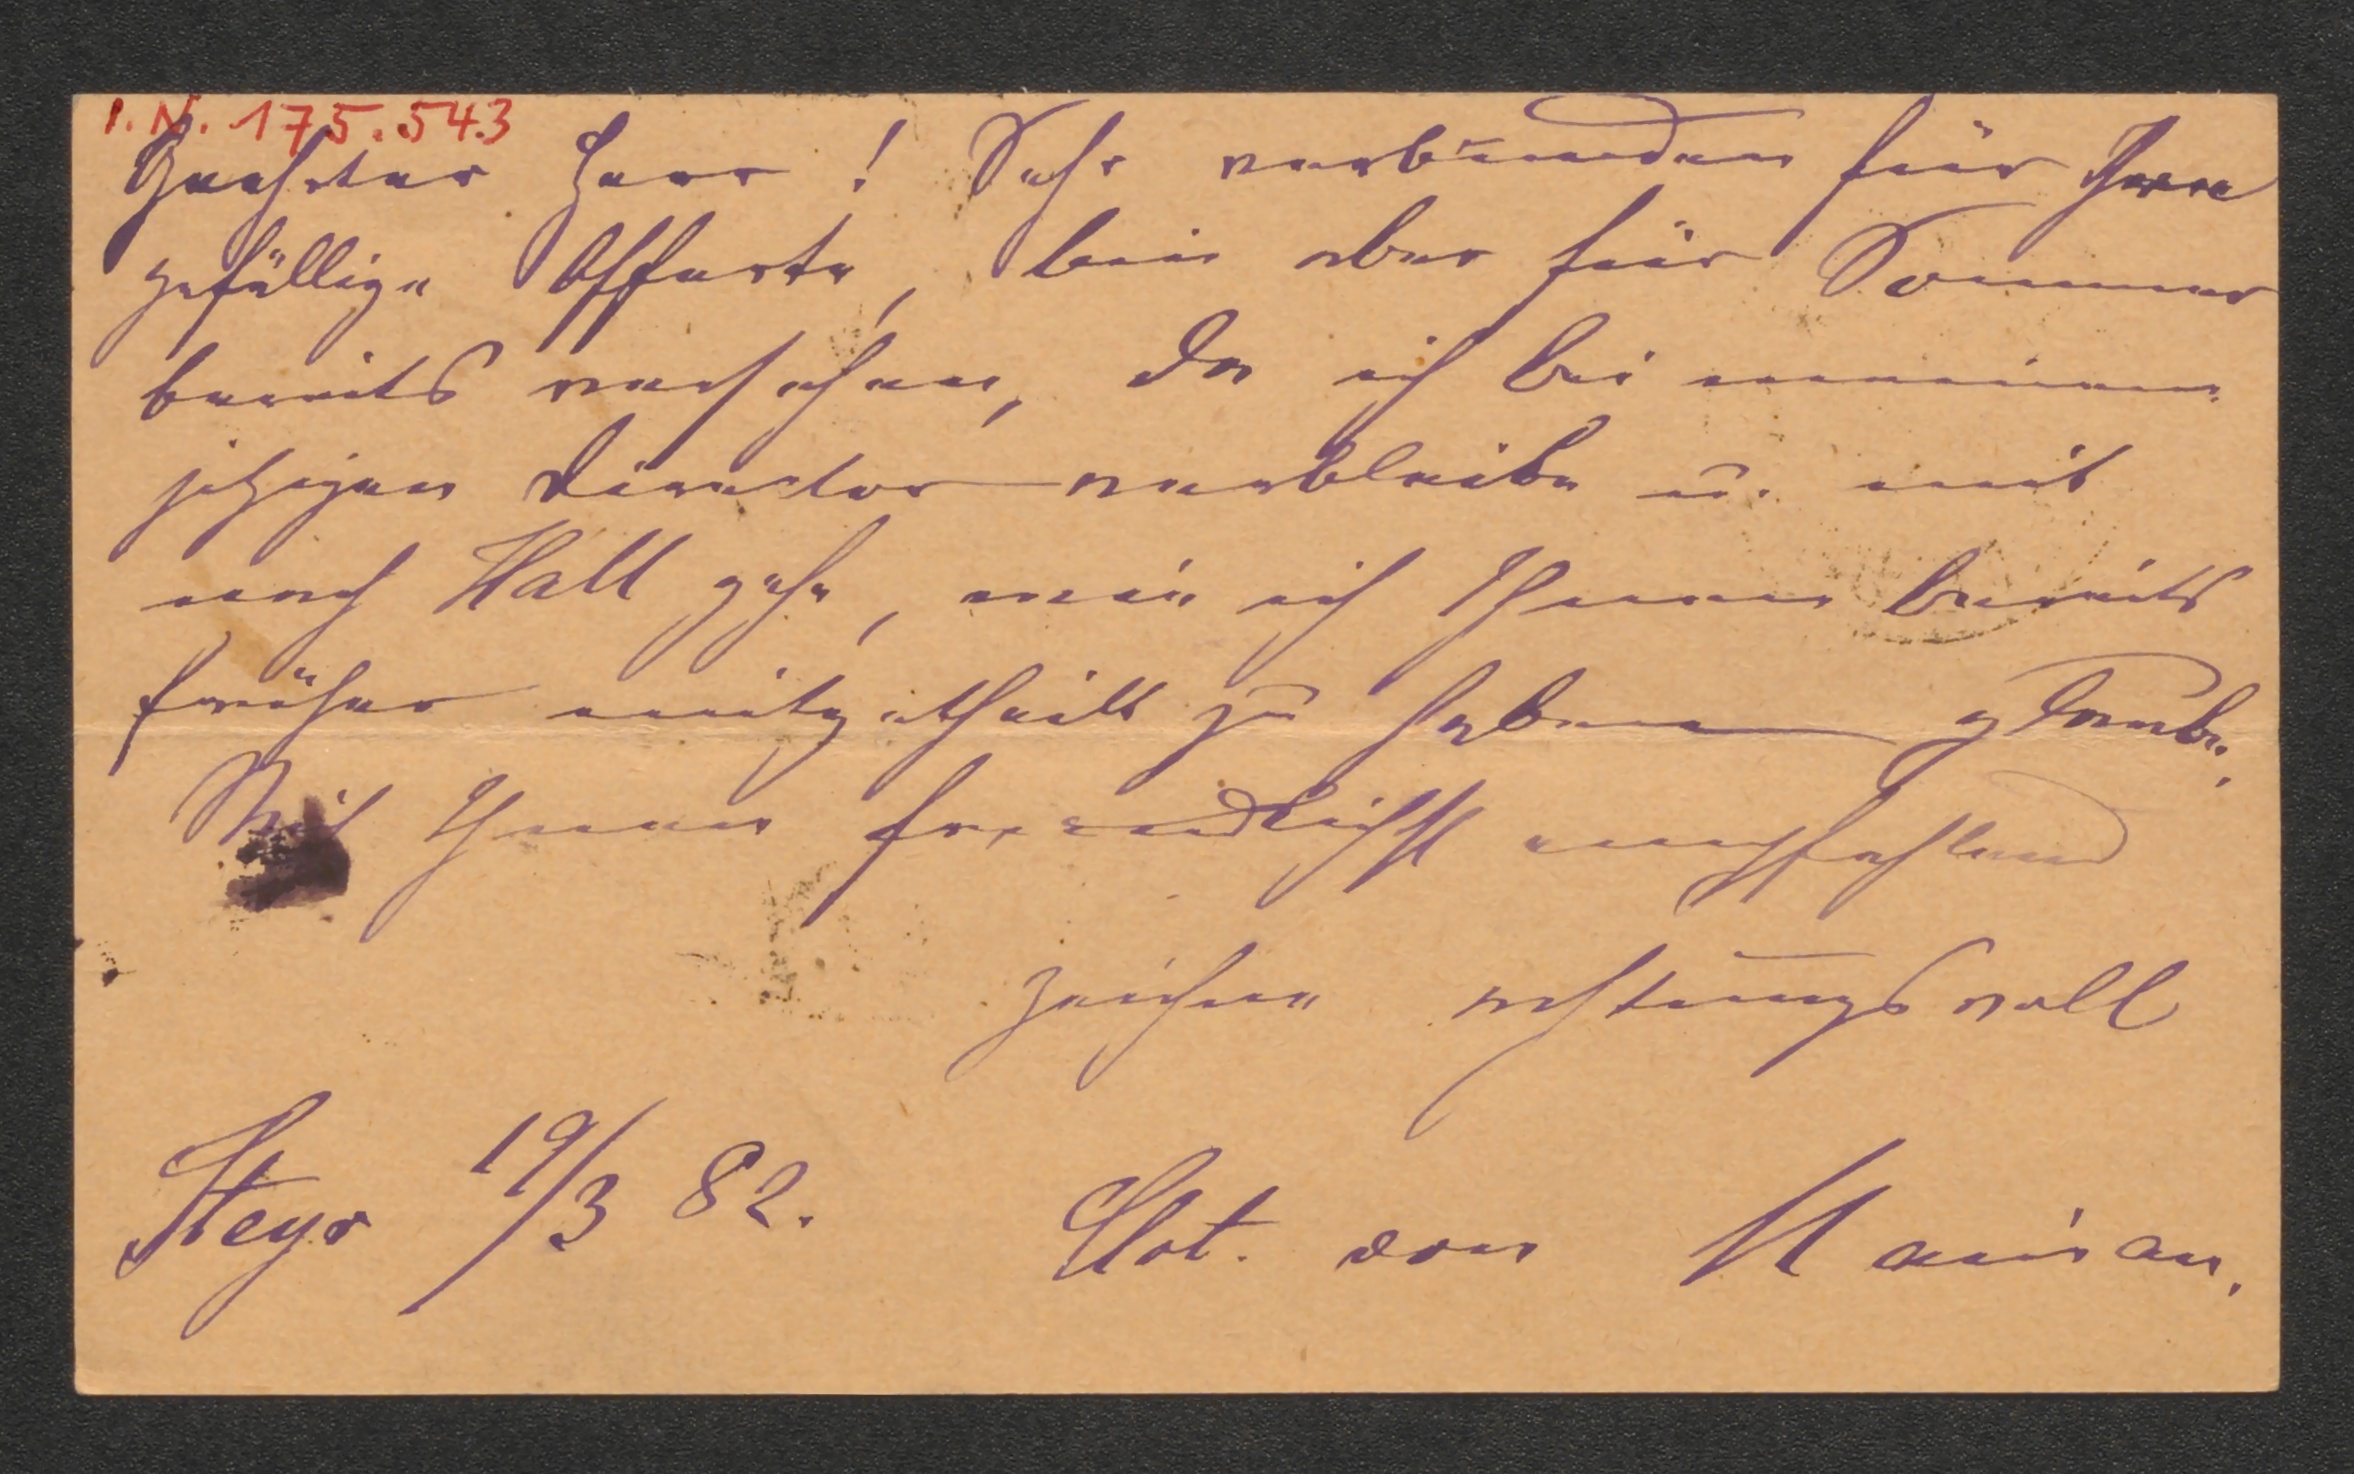 I.N. 175.543
Geehrter Herr! Sehr verbunden für Ihre
gefällige Offerte, bin aber für Sommer
bereits versehen, da ich bei meinem
jetzigen Director verbleibe u. mit
nach Hall gehe, wie ich Ihnen bereits
früher mitgetheilt zu haben glaube.
Mich Ihnen freundlichst empfehlend
zeichne achtungsvoll
Steyr 19/3 82. von